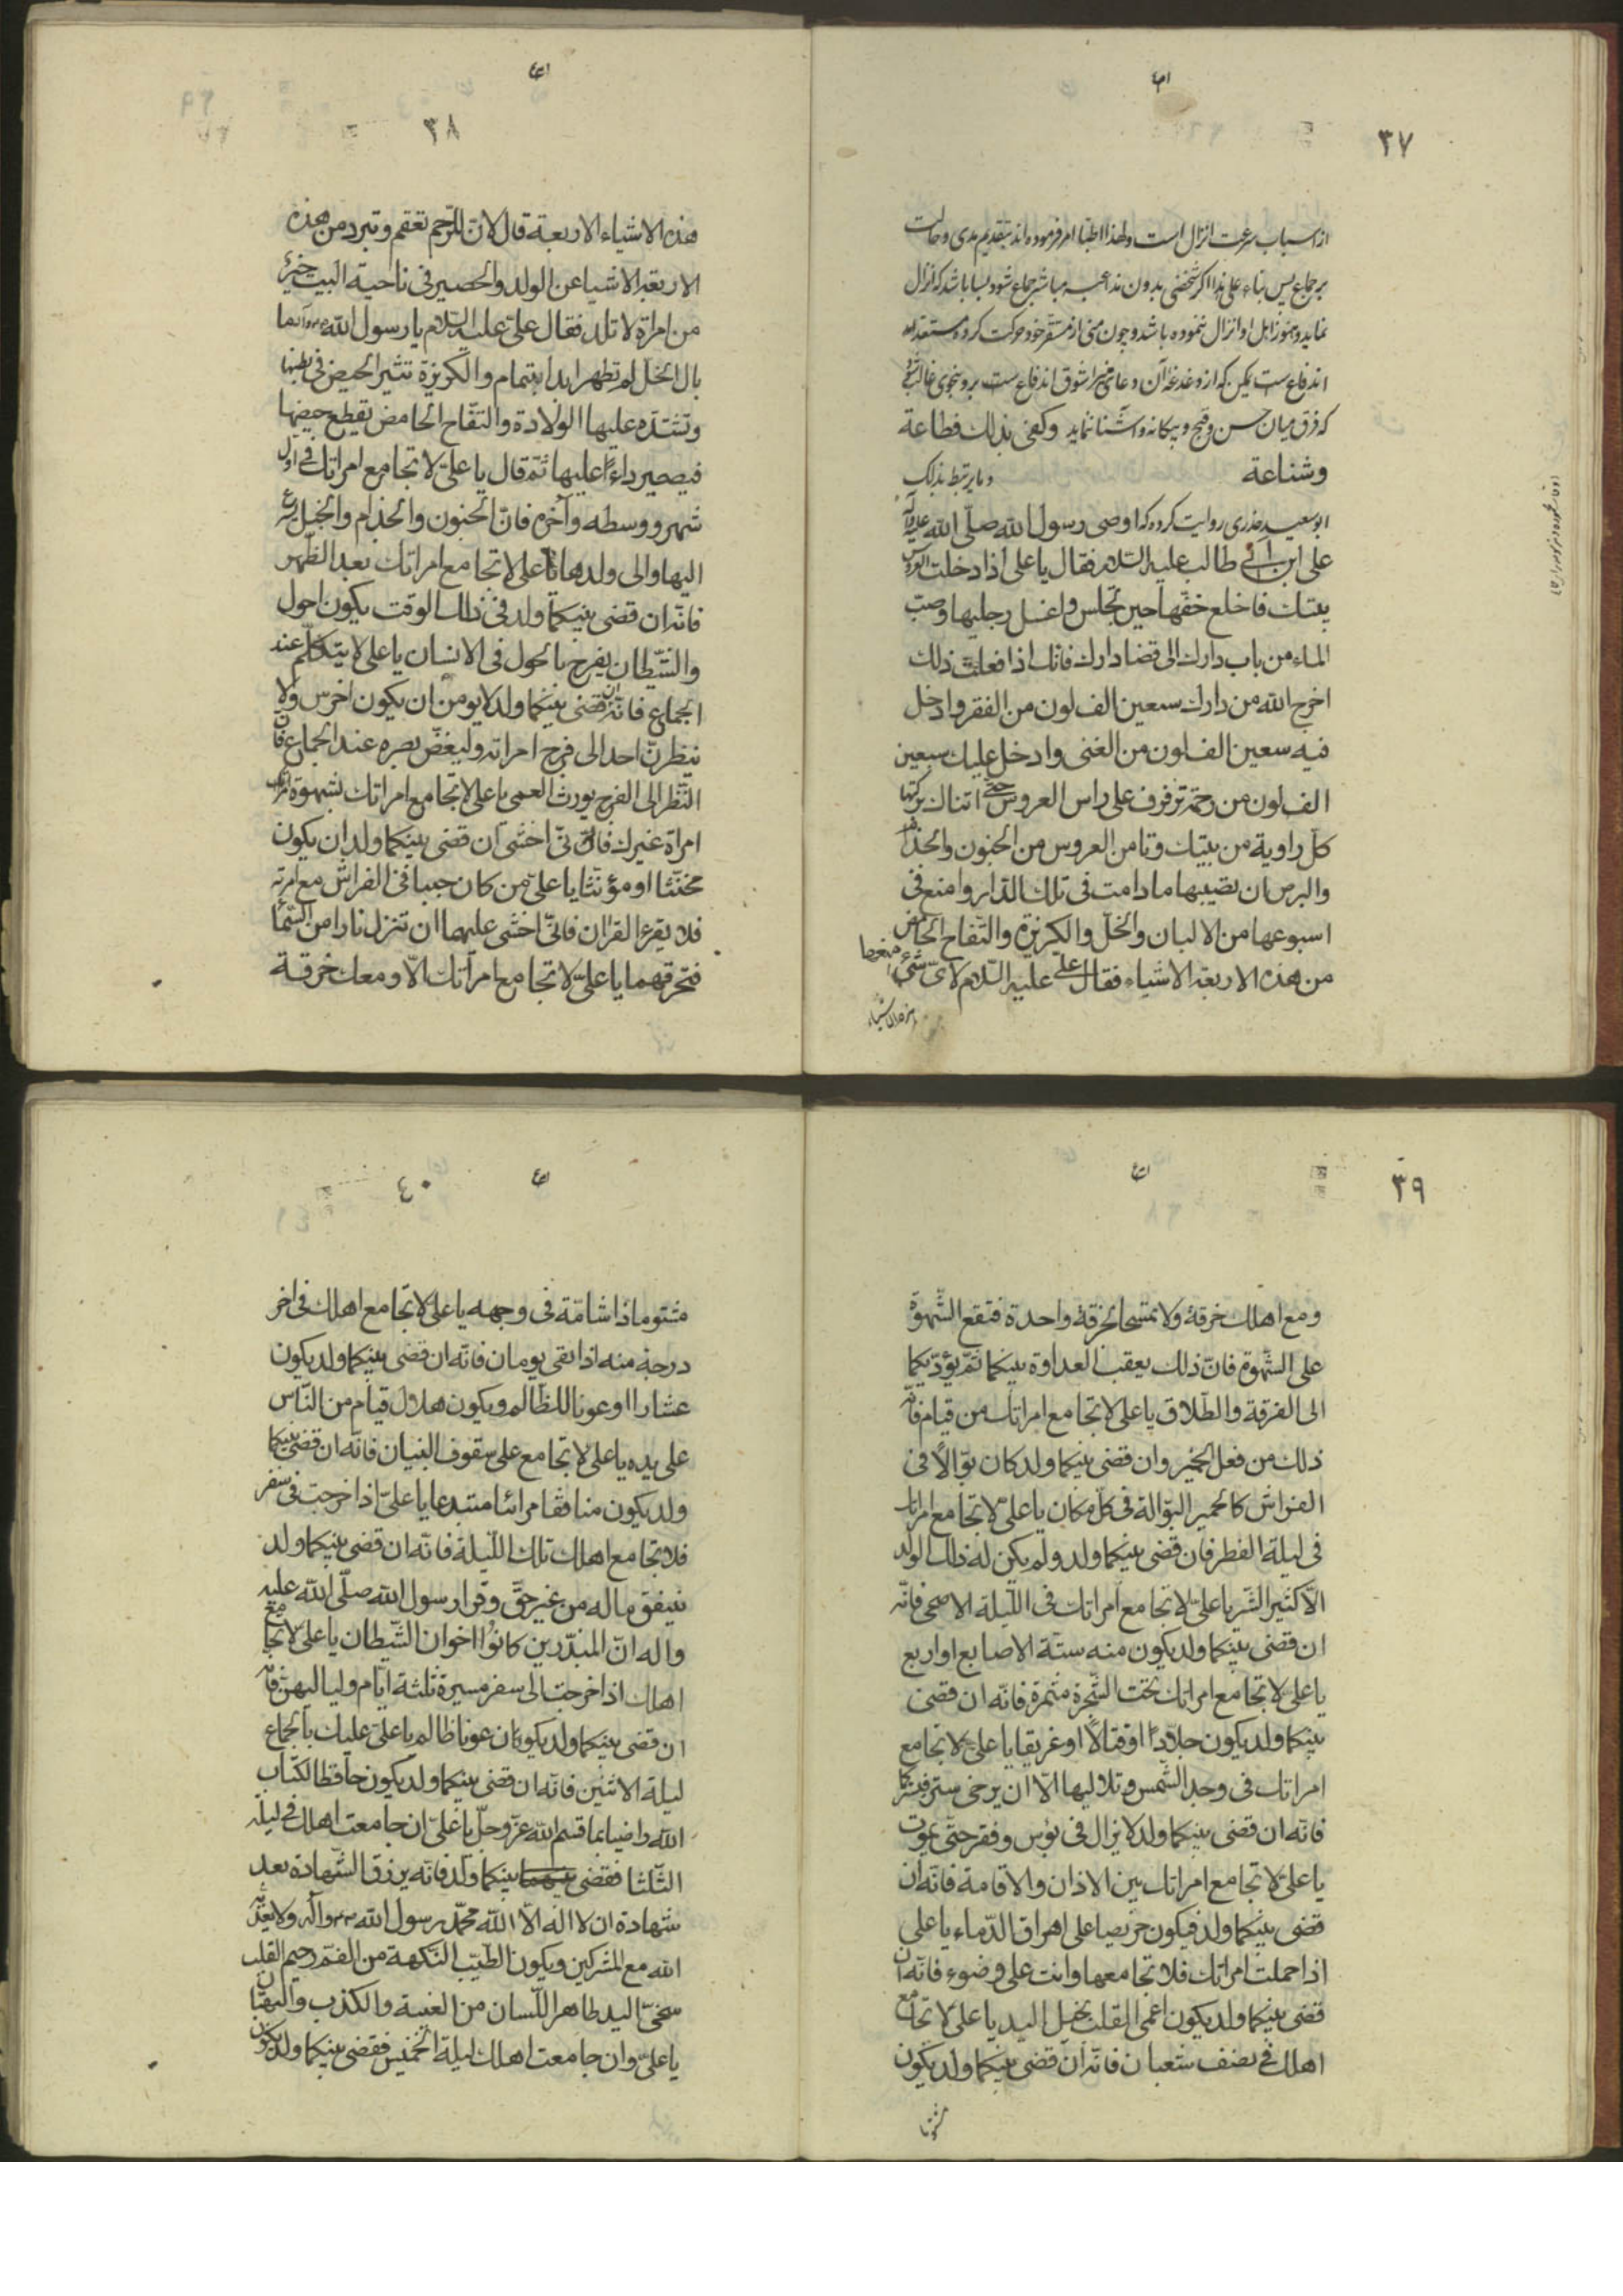 ۳۷
از اسباب سرعت انزال است ولهذا اطبا امر فرموده اند بتقدیم
بر جماع پس بناء علی هذا اگر شخصی بدون مباشر جماع شود بسا باشد که انزال
نماید و هنوز اهل او انزال ننموده باشد و چون منی از مستقر خود حرکت کرده مستعد
اندفاع ست یمکن که از دغدغه آن اندفاع ست بر و بنحوی غالب شود
که فرق میان حسن و قبح و بیکانه و آشنا ننماید وکفی بذلک فظاعة
وشناعة وما یرتبط بذلک
ابو سعید خدری روایت کرده که اوصی رسول الله صلّی الله علیه وآله
علی ابن ابی طالب علیه السّلام فقال یا علی اذا دخلت العروس
بیتک فاخلع خفّها حین تجلس واغسل رجلیها وصب
الماء من باب دارک الی قضا دارک فانّک اذا فعلت ذلک
اخرج الله من دارک سبعین الف لون من الفقر وادخل
فیه سعین الف لون من الغنی وادخل علیک سبعین
الف لون من رحمة ترفرف علی راس العروس حتّی اتناک برکتها
کلّ راویة من بیتک وتامن العروس من الجنون والجذام
والبرص ان تصیبها ما دامت فی تلک الدّار وامنع فی
اسبوعها من الالبان والخلّ والکزبزه والتّفاح الحامض
من هذه الاربعة الاشیاء فقال علیّ علیه السّلام لایّ شیء امنعها
هذه الاشیاء
۳۸
هذه الاشیاء الاربعة قال لانّ الرّحم تعقم وتبرد من هذه
الاربعة الاشیا عن الولد والحصیر فی ناحیة البیت خیر
من امراة لا تلد فقال علیّ علیه السّلام یا رسول الله ما
بال الخلّ لم تطهر ابدا بتمام والکزبزة تثیر الحیض فی بطنها
وتشتدّه علیها الولادة والتفّاح الحامض یقطع حیضها
فیصیر داءً علیها ثمّ قال یا علیّ لا تجامع امراتک فی اوّل
شهر ووسطه وآخره فانّ الجنون والجذام والخبل یسرع
الیها والی ولدها یا علی لا تجامع امراتک بعد الظّهر
فانّه ان قضی بینکما ولد فی ذلک الوقت یکون احول
والشّیطان یفرح بالحول فی الانسان یا علی لا یتکلّم عند
الجماع فانّه ان قضی بینکما ولد لا یومن ان یکون اخرس ولا
ینظرنّ احد الی فرج امراته ولیغضّ بصره عند الجماع فان
النّظر الی الفرج یورث العمی یا علی لا تجامع امراتک بشهوة
امراة غیرک فانّی اخشی ان قضی بینکما ولد ان یکون
مخنّثا او مؤنّثا یا علی من کان جنبا فی الفراش مع امرته
فلا یقرء القرآن فانّی اخشی علیهما ان تنزل نارا من السّماء
فتحرقهما یا علیّ لا تجامع امراتک الّا ومعک خرقة
۳۹
ومع اهلک خرقة ولا تمسحا بخرقة واحدة فتقع الشّهوة
علی الشّهوة فانّ ذلک یعقب العداوة بینکما ثمّ یؤدّیکما
الی الفرقة والطّلاق یا علی لا تجامع امراتک من قیام فانّ
ذلک من فعل الحمیر وان قضی بینکما ولد کان بوّالًا فی
الفراش کالحمیر البوّالة فی کلّ مکان یا علیّ لا تجامع امراتک
فی لیلة الفطر فان قضی بینکما ولد ولم یکن له ذلک الولد
الّا کثیر الشّر یا علی لا تجامع امراتک فی اللّیلة الاضحی فانّه
ان قضی بینکما ولد یکون منه ستّة الاصابع او اربع
یا علی لا تجامع امراتک تحت الشّجرة مثمرة فانّه ان قضی
بینکما ولد یکون جلّادًا او قتالًا او غریقا یا علی لا تجامع
امراتک فی وجه الشّمس وتلالیها الّا ان یرخی ستر فیسترکما
فانّه ان قضی بینکما ولد لا یزال فی بؤس وفقر حتّی یموت
یا علیّ لا تجامع امراتک بین الاذان والاقامة فانّه ان
قضی بینکما ولد فیکون حریصا علی اهراق الدّماء یا علی
اذا حملت امراتک فلا تجامعها وانت علی وضوء فانّه ان
قضی بینکما ولد یکون اعمی القلب بخیل الید یا علی لا تجامع
اهلک فی نصف شعبان فانّه ان قضی بینکما ولد یکون
مشوّما
۴۰
مشتوما ذا شامّة فی وجهه یا علی لا تجامع اهلک فی اخر
درجة منه اذا بقی یومان فانّه ان قضی بینکما ولد یکون
عشارا او عونا للظّالم ویکون هلاک قیام من النّاس
علی یده یا علی لا تجامع علی سقوف البنیان فانّه ان قضی بینکما
ولد یکون منافقا مرائیا مبتدعا یا علیّ اذا خرجت فی سفر
فلا تجامع اهلک تلک اللّیلة فانّه ان قضی بینکما ولد
ینفق ماله من غیر حقّ وقرا رسول الله صلّی الله علیه
واله انّ المبذّرین کانوا اخوان الشّیطان یا علیّ لا تجامع
اهلک اذا خرجت الی سفر مسیرة ثلثة ایّام ولیالیهنّ فانّه
ان قضی بینکما ولد یکون عونا ظالم یا علی علیک بالجماع
لیلة الاثنین فانّه ان قضی بینکما ولد یکون حافظا لکتاب
الله راضیا بما قسم الله عزّ وجلّ یا علیّ ان جامعت اهلک فی لیلة
الثّلثا فقضی بینکما ولد فانّه یرزق الشّهادة بعد
شهادة ان لا اله الّا الله محمّد رسول الله وآله ولا یعذّبه
الله مع المشرکین ویکون الطّیّب النّکهة من الفم رحیم القلب
سخیّ الید طاهر اللّسان من الغیبة والکذب والبهتان
یا علیّ وان جامعت اهلک لیلة الخمیس فقضی بینکما ولد یکون